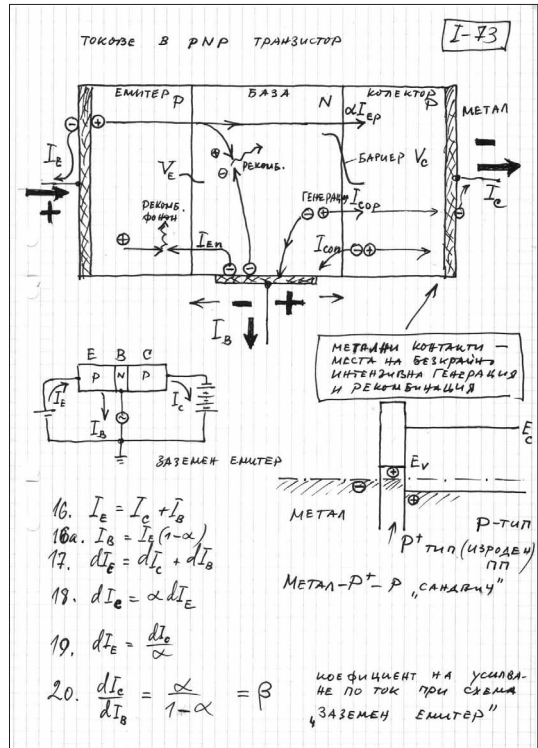 ТОКОВЕ В PNP ТРАНЗИСТОР
I-73
ЕМИТЕР P
БАЗА N
КОЛЕКТОР P
МЕТАЛ
αI_Ep
I_E
V_E
РЕКОМБ.
БАРИЕР V_C
I_C
РЕКОМБ.
ФОНОН
I_En
ГЕНЕРАЦИЯ I_COP
I_COn
I_B
МЕТАЛНИ КОНТАКТИ –
МЕСТА НА БЕЗКРАЙНО
ИНТЕНЗИВНА ГЕНЕРАЦИЯ
И РЕКОМБИНАЦИЯ
E B C
P N P
I_E
I_B
I_C
ЗАЗЕМЕН ЕМИТЕР
E_C
E_V
МЕТАЛ
P-ТИП
P⁺ ТИП (ИЗРОДЕН
ПП)
МЕТАЛ–P⁺–P „САНДВИЧ"
16. I_E = I_C + I_B
16а. I_B = I_E(1-α)
17. dI_E = dI_C + dI_B
18. dI_C = α dI_E
19. dI_E = dI_C / α
20. dI_C / dI_B = α / 1-α = β
КОЕФИЦИЕНТ НА УСИЛВА-
НЕ ПО ТОК ПРИ СХЕМА
„ЗАЗЕМЕН ЕМИТЕР"